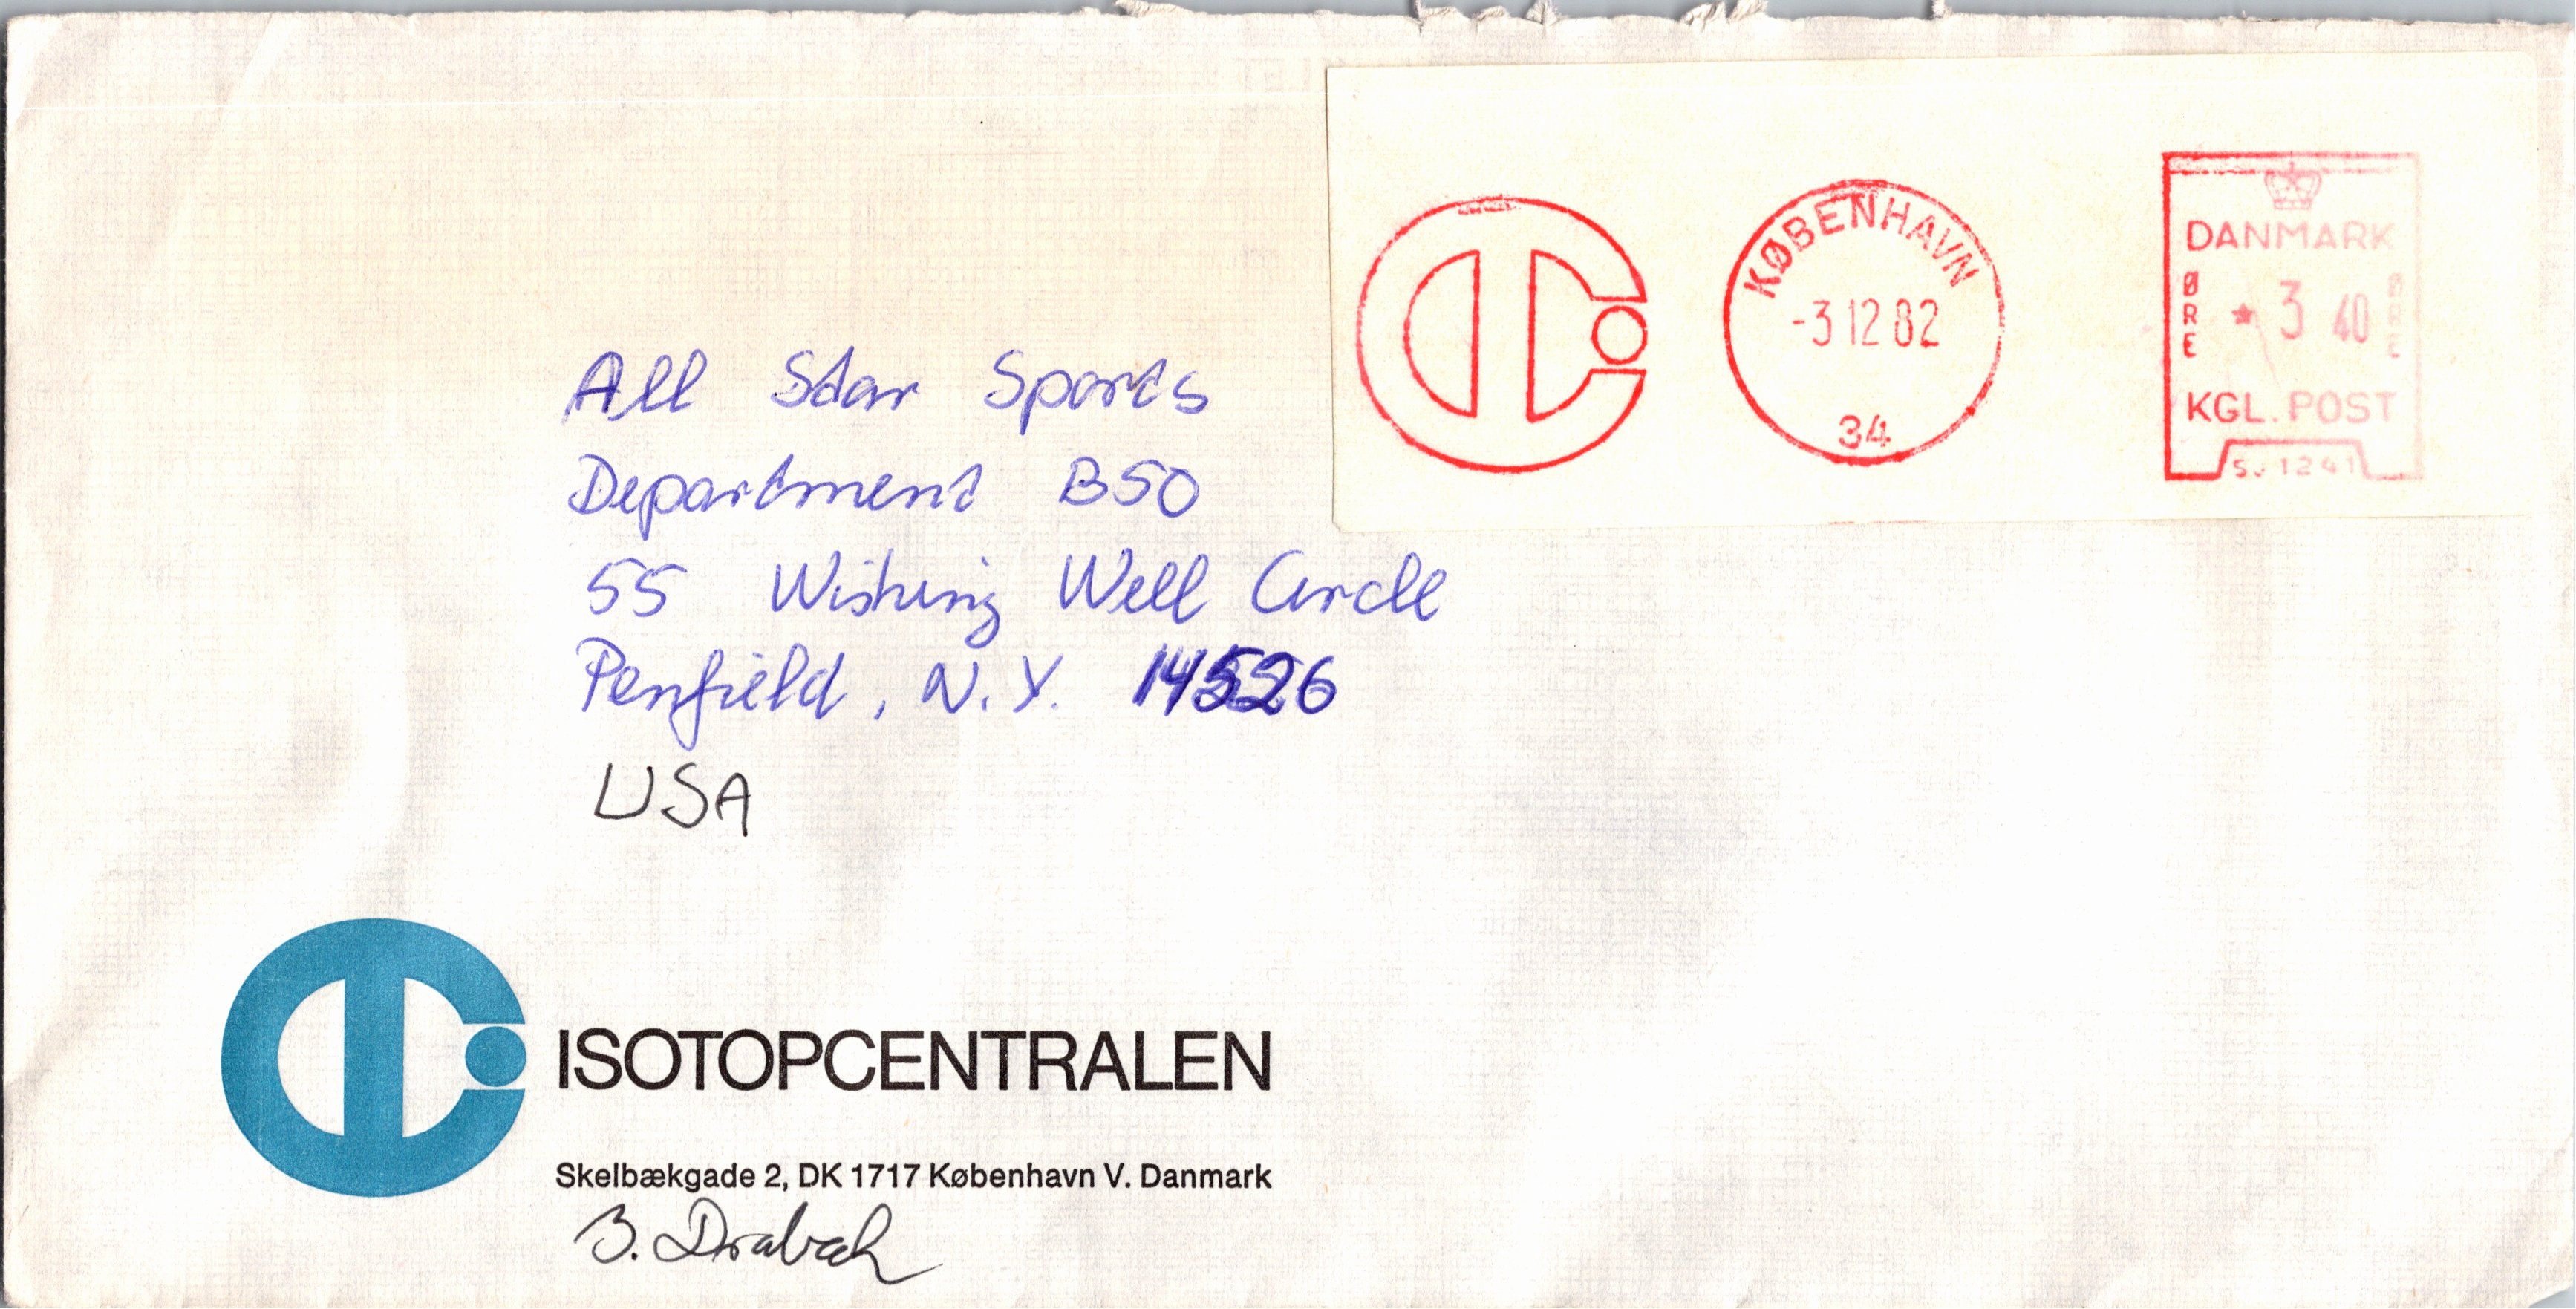 KØBENHAVN
-3 12 82
34
DANMARK
ØRE * 3 40 ØRE
KGL. POST
S.J 1241
All Star Sports
Department B50
55 Wishing Well Circle
Penfield, N.Y. 14526
USA
ISOTOPCENTRALEN
Skelbækgade 2, DK 1717 København V. Danmark
B. Drabæk